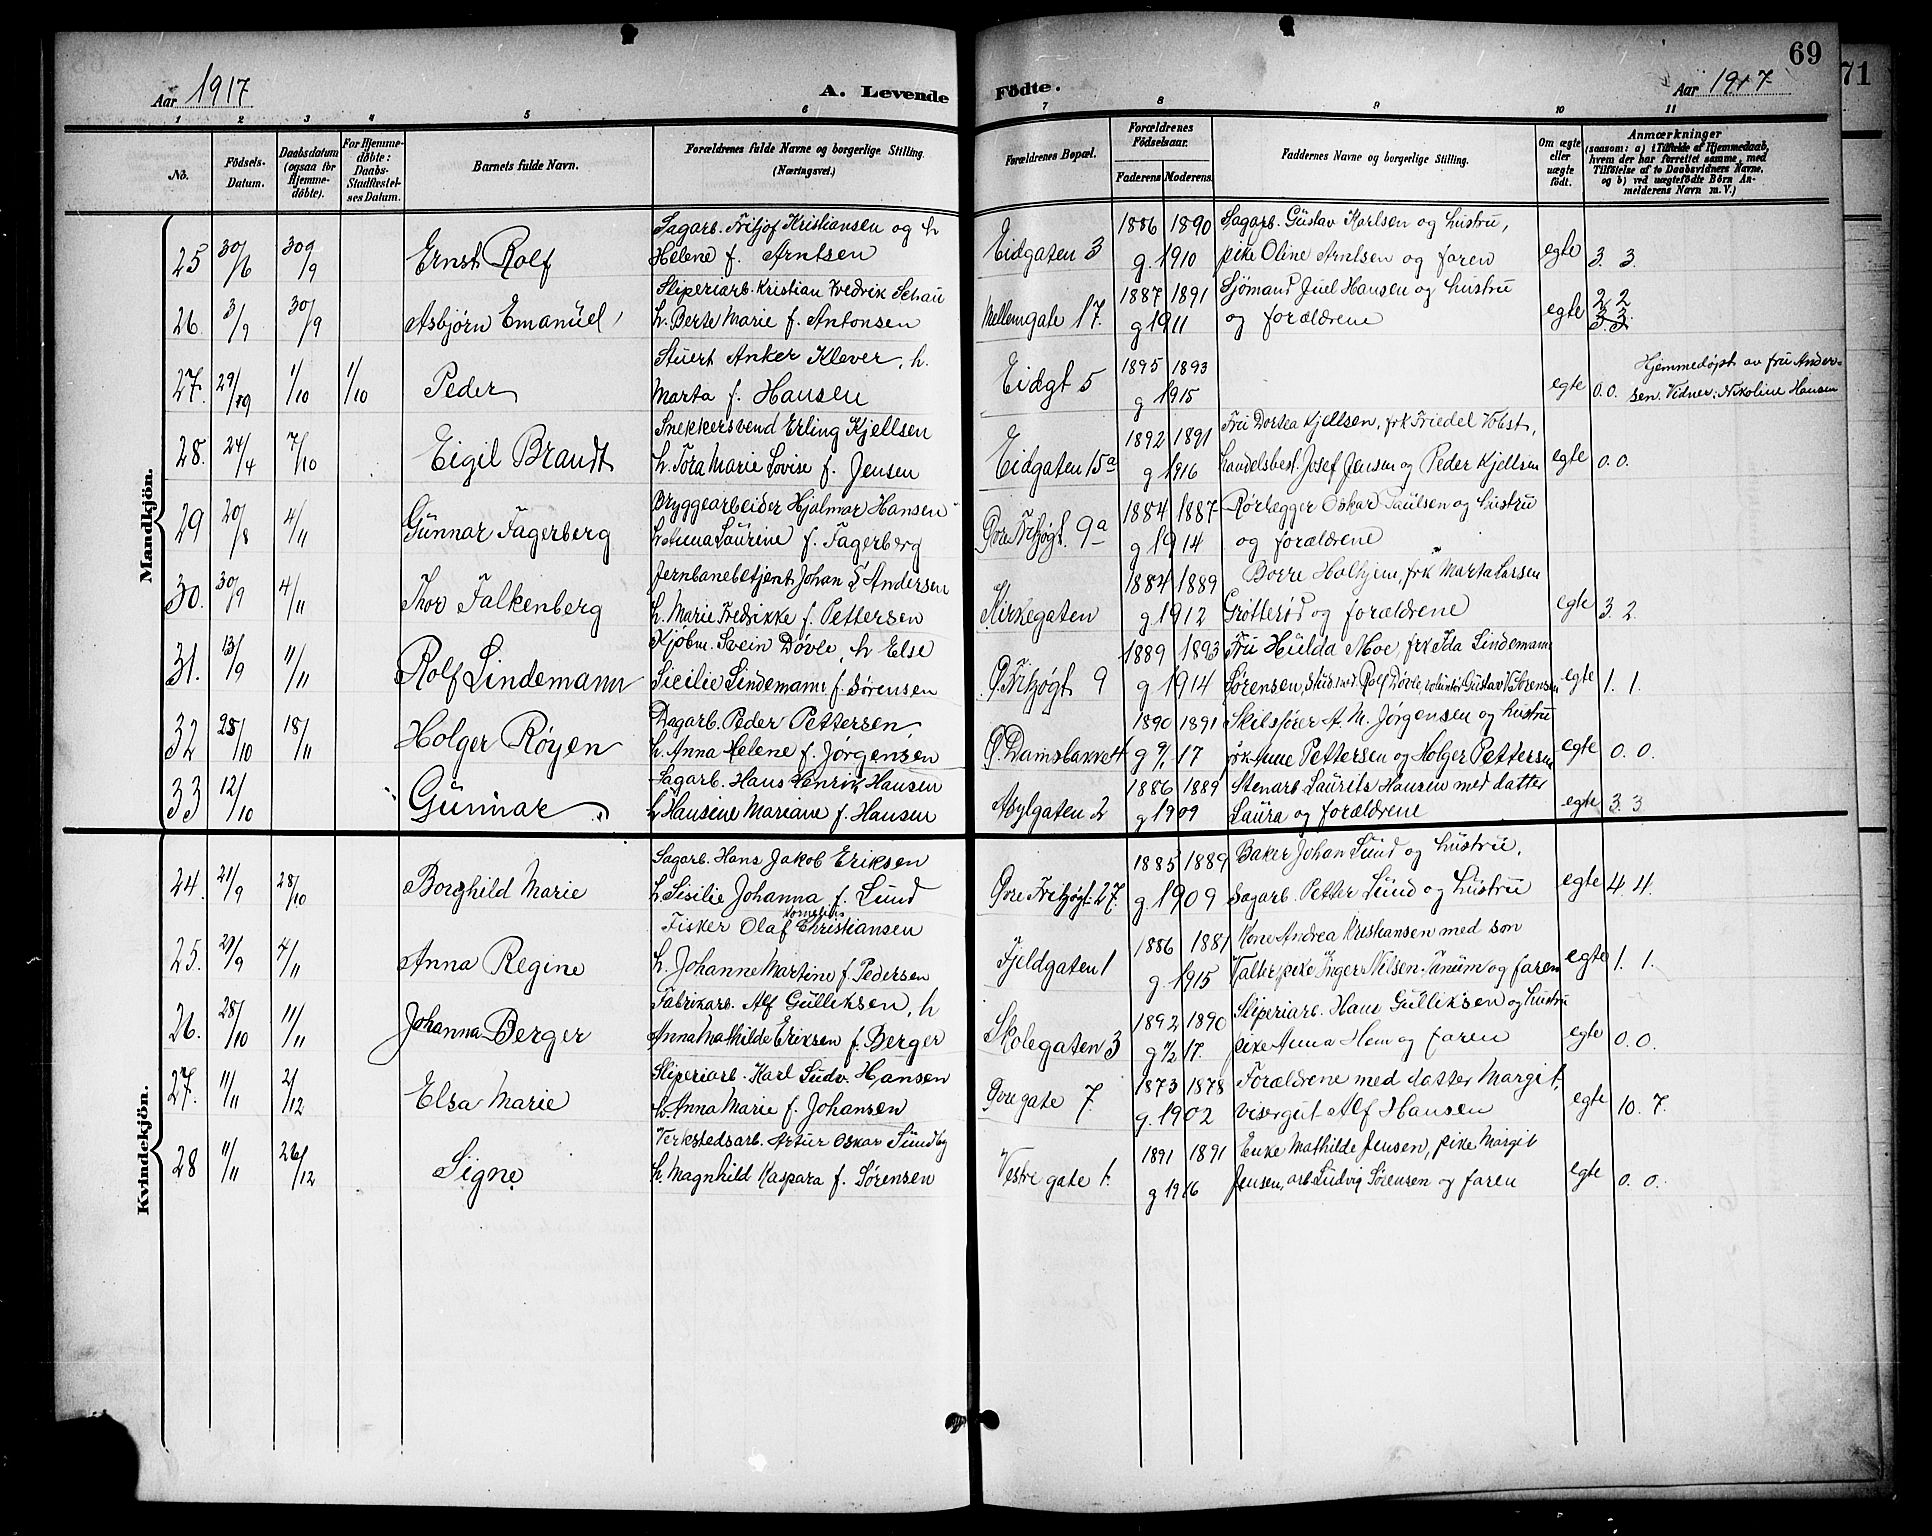 Aar 1917
A. Levende Födte.
Aar 1917
69
71
1 2 3 4 5 6 7 8 9 10 11
No.
Födsels-Datum.
Daabsdatum (ogsaa for Hjemme-döbte).
For Hjemme-döbte: Daabs-Stadfæstel-ses Datum.
Barnets fulde Navn.
Forældrenes fulde Navne og borgerlige Stilling. (Næringsvei.)
Forældrenes Bopæl.
Forældrenes Födselsaar.
Faderens Moderens.
Faddernes Navne og borgerlige Stilling.
Om ægte eller uægte födt.
Anmærkninger
(saasom: a) i Tilfælde af Hjemmedaab, hvem der har forrettet samme, med Tilföielse af to Daabsvidners Navne, og b) ved uægtefödte Börn An-melderens Navn m. V.)
Mandkjön.
25 30/6 30/9 Ernst Rolf
Sagarb. Fritjof Kristiansen og h
Helene f. Arntsen
Eidgaten 3
1886 1890
g. 1910
Sagarb. Gustav Karlsen og hustru,
pike Oline Arntsen og faren
egte 3. 3.
26. 3/9 30/9 Asbjørn Emanuel
Sliperiarb. Kristian Fredrik Schau
h. Berte Marie f. Antonsen
Mellemgate 17.
1887 1891
g 1911
Sjømand Juel Hansen og hustru
og forældrene
egte 2 2
3 3.
27. 29/9 1/10 1/10 Peder
Stuert Anker Klever, h.
Marta f. Hansen
Eidgt 5
1895 1893
g 1915
egte 0. 0.
Hjemmedøpt av fru Ander-
sen. Vidner: Nikoline Hansen
28. 24/4 7/10 Eigil Brandt
Snekkersvend Erling Kjellsen
h. Tora Marie Lovise f. Jensen
Eidgaten 15a
1892 1891
g 1916
Fru Dortea Kjellsen, frk Friedel Vobst,
handelsbest. Josef Jensen og Peder Kjellsen
egte 0. 0.
29 20/8 4/11 Gunnar Fagerberg
Bryggearbeider Hjalmar Hansen
h. Anna Laurine f. Fagerberg
Øvre Fritzøgt. 9a
1884 1887
g 1914
Rørlegger Oskar Paulsen og hustru
og forældrene
30. 30/9 4/11 Thor Falkenberg
Jernbanebetjent Johan E Andersen
h. Marie Fredrikke f. Pettersen
Kirkegaten
1884 1889
g 1912
Borre Holhjem, frk Marta Larsen
Grøtterød og forældrene
egte 3 2.
31. 13/9 11/11 Rolf Lindemann
Kjøbm. Svein Døvle, h Else
Sicilie Lindemann f. Sørensen
Ø. Fritzøgt 9
1889 1893
g 1914
Fru Hulda Moe, frk Ida Lindemann
Sørensen, stud. med. Rolf Døvle, volontør Gustav V Sørensen
egte 1. 1.
32 28/10 18/11 Holger Røyen
Dagarb. Peder Pettersen,
h. Anna Helene f. Jørgensen
Ø. Damsbakke 4
1890 1891
g 9/1 17
Skibsfører A. M. Jørgensen og hustru
frk Anne Pettersen og Holger Pettersen
egte 0. 0.
33 12/10 Gunnar
Sagarb. Hans Henrik Hansen
h Hansine Mariane f. Hansen
Asylgaten 2
1886 1889
g 1909
Stenarb Laurits Hansen med datter
Laura og forældrene
egte 3. 3
Kvindekjön.
24. 21/9 28/10 Borghild Marie
Sagarb. Hans Jakob Eriksen
h. Sesilie Johanna f. Lund
Øvre Fritzøgt. 27.
1885 1889
g. 1909
Baker Johan Lund og hustru,
Sagarb. Petter Lund og hustru
egte 4 4.
25. 29/9 4/11 Anna Regine
Fisker Olaf Kornelius Christiansen
h. Johanne Martine f. Pedersen
Fjeldgaten 1
1886 1881
g 1915
Kone Andrea Kristiansen med søn
Valter, pike Inger Nilsen Tanum og faren
egte 1. 1.
26. 28/10 11/11 Johanna Berger
Fabrikarb. Alf Gulliksen, h
Anna Mathilde Eriksen f. Berger
Skolegaten 3
1892 1890
g 1/2 17.
Sliperiarb. Hans Gulliksen og hustru
pike Anna Hem og faren
egte 0. 0.
27. 11/11 2/12 Elsa Marie
Sliperiarb. Karl Ludv. Hansen
h. Anna Marie f. Johansen
Øvregate 7.
1873 1878
g. 1902
Forældrene med datter Margit,
visergut Alf Hansen
egte 10. 7.
28 11/11 26/12 Signe
Verkstedsarb. Artur Oskar Sundby
h. Magnhild Kaspara f. Sørensen
Vestre gate 1.
1891 1891
g 1916
Enke Mathilde Jensen, pike Margit
Jensen, arb. Ludvig Sørensen og faren
egte 0. 0.